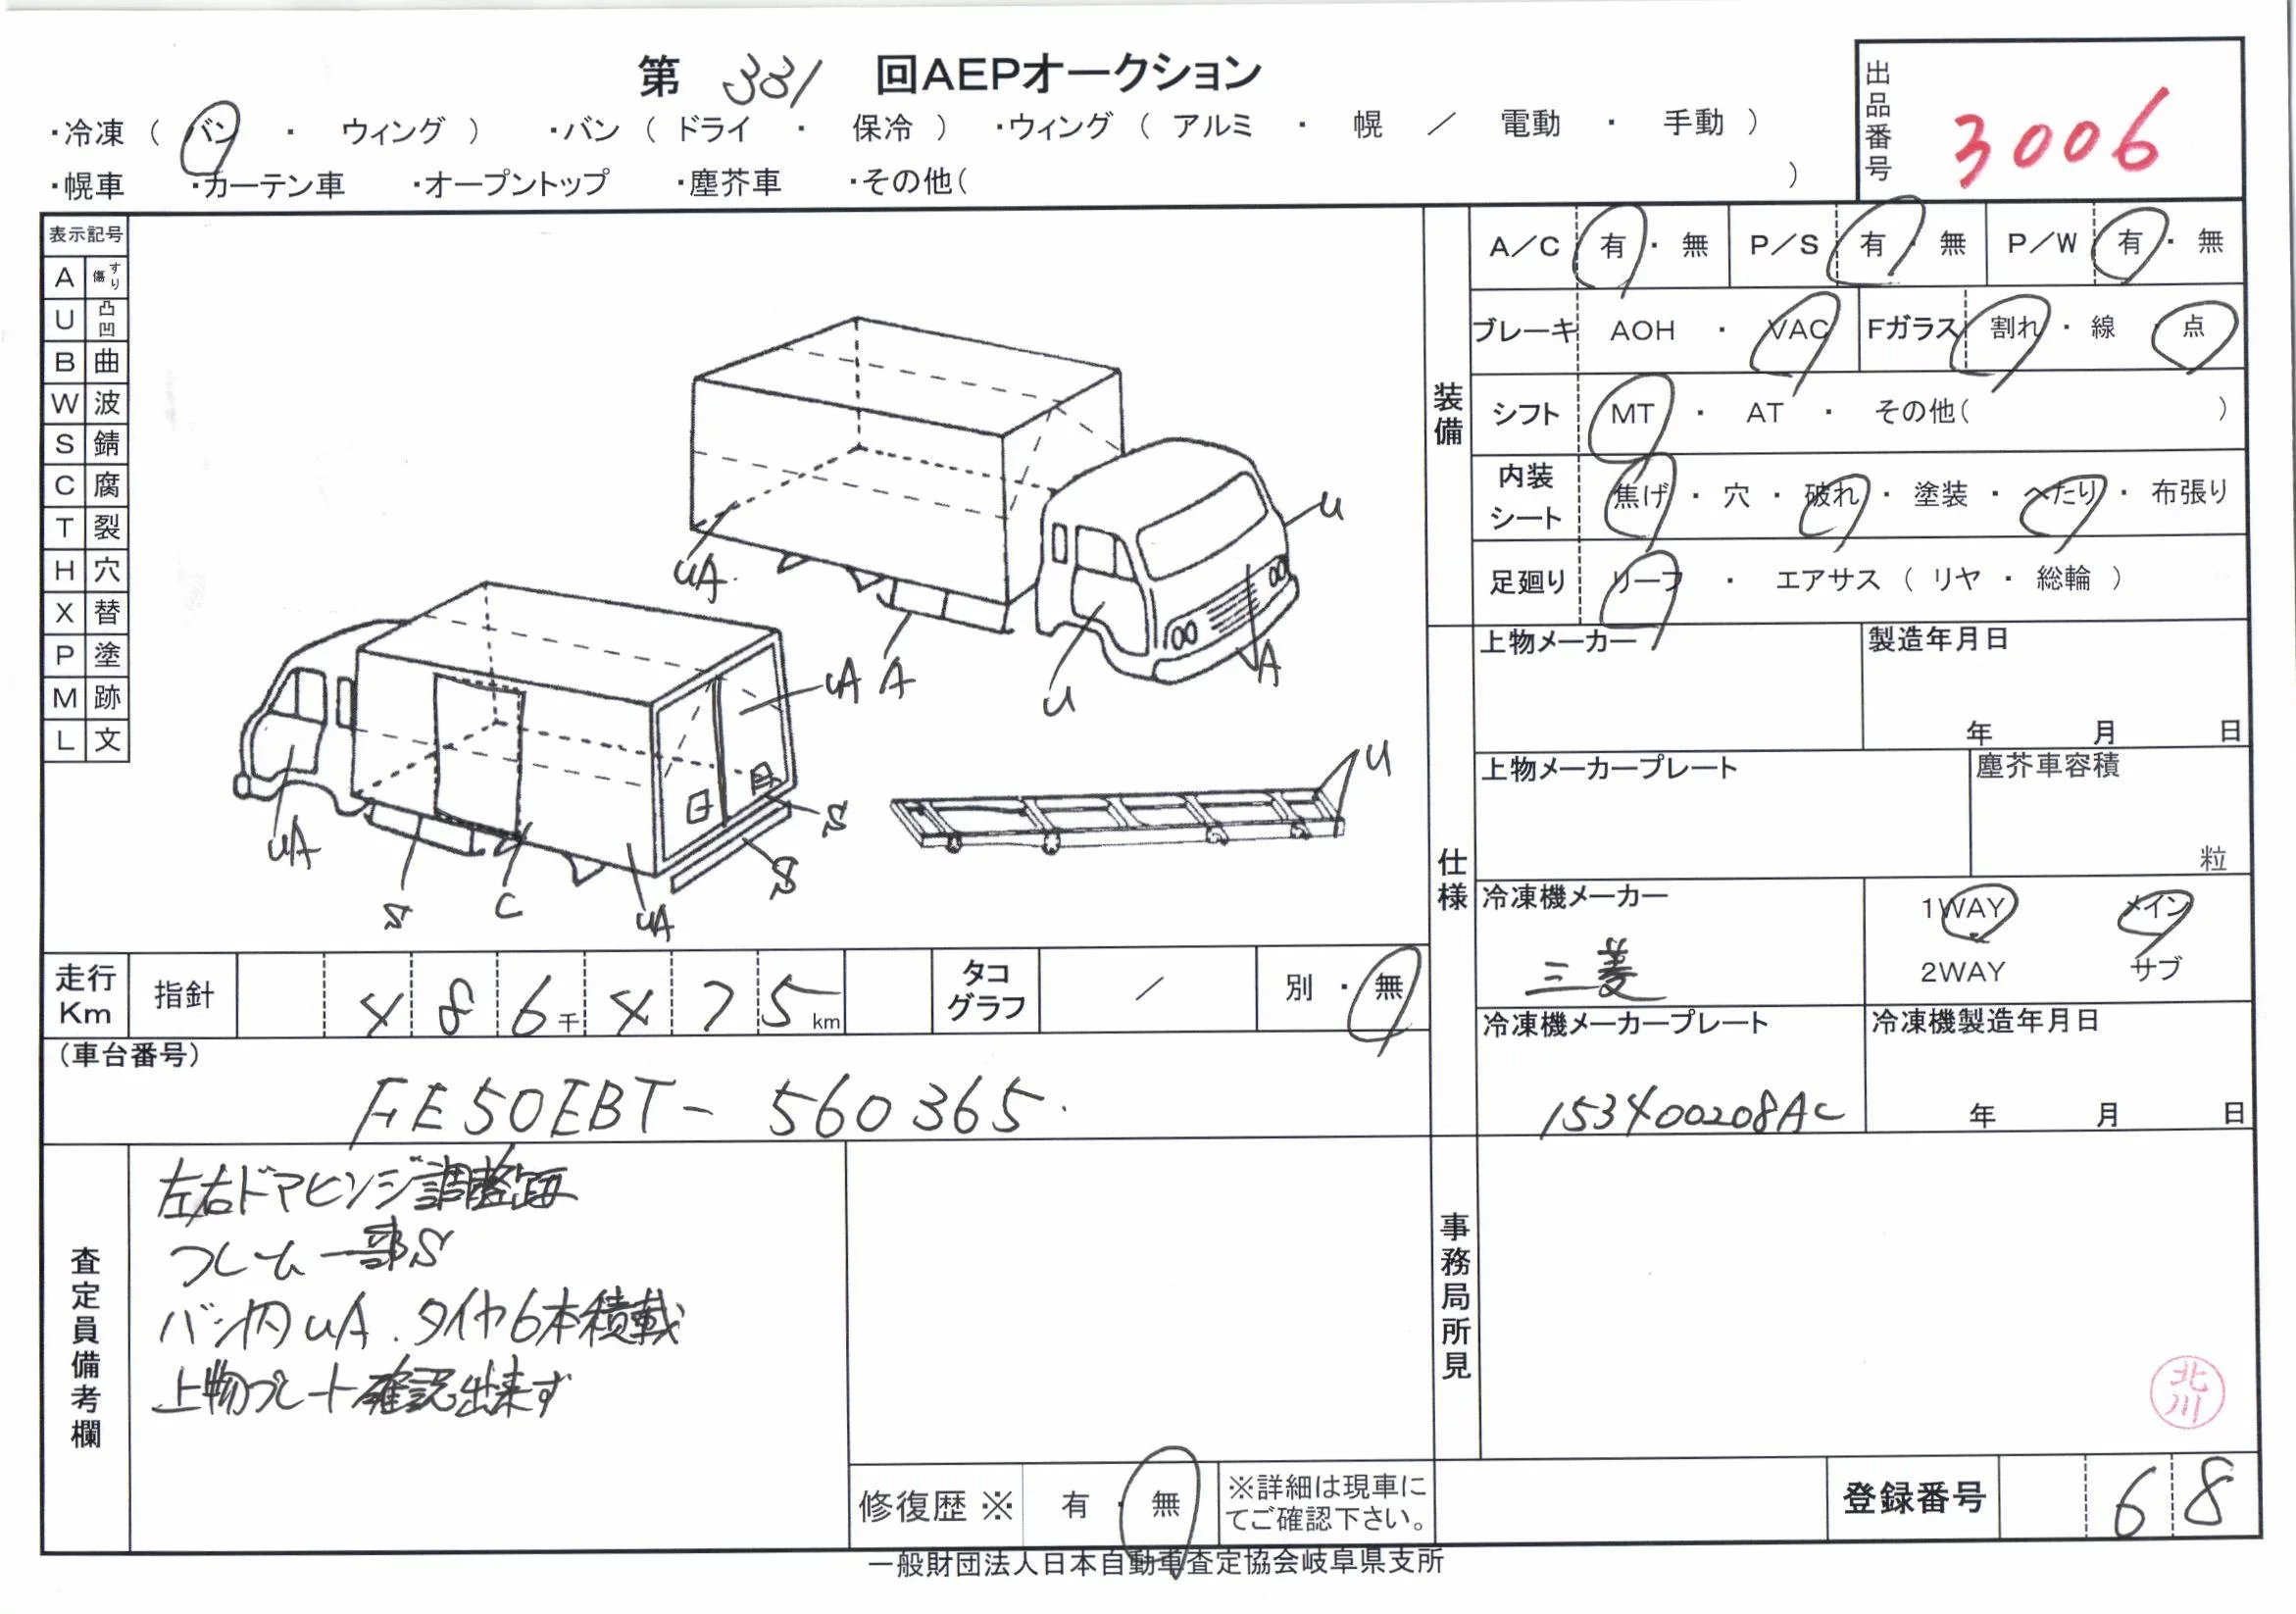 第 331 回AEPオークション
・冷凍 ( バン ・ ウィング ) ・バン ( ドライ ・ 保冷 ) ・ウィング ( アルミ ・ 幌 ／ 電動 ・ 手動 )
・幌車 ・カーテン車 ・オープントップ ・塵芥車 ・その他( )
出品番号 3006
表示記号
A すり傷
U 凸凹
B 曲
W 波
S 錆
C 腐
T 裂
H 穴
X 替
P 塗
M 跡
L 文
U
UA
A
U
A
UA
UA
S
C
UA
S
S
U
装備
A／C 有 ・ 無 P／S 有 ・ 無 P／W 有 ・ 無
ブレーキ AOH ・ VAC Fガラス 割れ ・ 線 点
シフト MT ・ AT ・ その他( )
内装シート 焦げ ・ 穴 ・ 破れ ・ 塗装 ・ へたり ・ 布張り
足廻り リーフ ・ エアサス ( リヤ ・ 総輪 )
仕様
上物メーカー 製造年月日
年 月 日
上物メーカープレート 塵芥車容積
粒
冷凍機メーカー 三菱
1WAY メイン
2WAY サブ
冷凍機メーカープレート 153400208AC
冷凍機製造年月日
年 月 日
走行Km 指針 4 8 6 千 4 7 5 km タコグラフ ／ 別 ・ 無
(車台番号)
FE50EBT- 560365.
査定員備考欄
左右ドアヒンジ調整
フレーム一部S
バン内UA . タイヤ6本積載
上物プレート確認出来ず
修復歴 ※ 有 ・ 無 ※詳細は現車にてご確認下さい。
事務局所見
北川
登録番号 6 8
一般財団法人日本自動車査定協会岐阜県支所